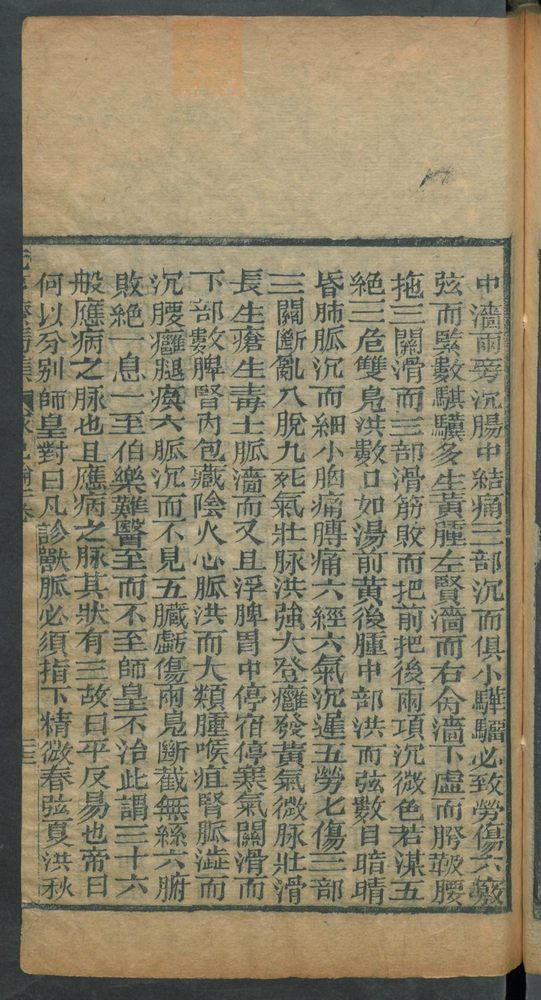 中濇兩旁沉腸中結痛三部沉而俱小驊騮必致勞傷六數
弦而緊數騏驥多生黃腫左腎濇而右旁濇下虛而胯䩕腰
拖三關滑而三部滑筋敗而把前把後兩項沉微色若渫五
絕三危雙鳧洪數口如湯前黃後腫中部洪而弦數目暗睛
昏肺脈沉而細小胸痛膊痛六經六氣沉遲五勞七傷三部
三關斷亂八脫九死氣壯脉洪強大登癰發黃氣微脉壯滑
長生瘡生毒土脈濇而又且浮脾胃中停宿停寒氣關滑而
下部數脾腎內包藏陰火心脈洪而大類腫喉疽腎脈澁而
沉腰癱腿瘓六脈沉而不見五臟虧傷兩鳧斷截無絲六腑
敗絕一息一至伯樂難醫至而不至師皇不治此謂三十六
般應病之脉也且應病之脉其狀有三故曰平反易也帝曰
何以分別師皇對曰凡診獸脈必須指下精微春弦夏洪秋